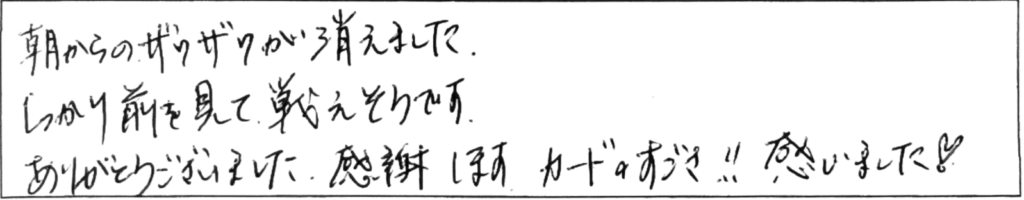 朝からのザワザワが消えました.
しっかり前を見て.戦えそうです.
ありがとうございました.感謝します カードのすごさ!!感じました♡